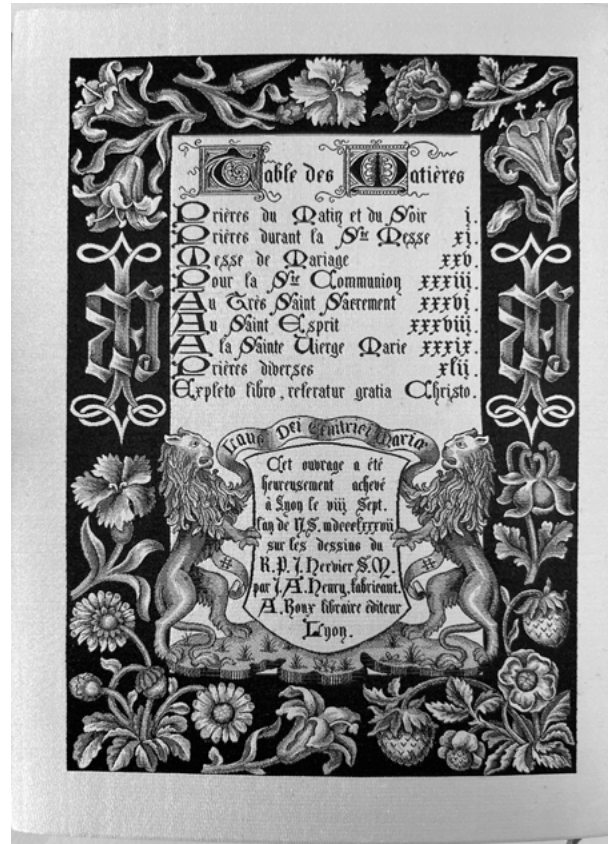 Table des Matières
Prières du Matin et du Soir i.
Prières durant la Ste Messe xj.
Messe de Mariage xxv.
Pour la Ste Communion xxxiii.
Au Très Saint Sacrement xxxvi
Au Saint Esprit xxxviii.
A la Sainte Vierge Marie xxxix.
Prières diverses xlii.
Expleto libro, referatur gratia Christo.
Laus Dei Genitrici Mariæ
Cet ouvrage a été
heureusement achevé
à Lyon le viij Sept.
l'an de N.S. mdccclxxxvii
sur les dessins du
R.P.J. Hervier S.M.
par J.A. Henry, fabricant.
A. Roux libraire éditeur
Lyon.